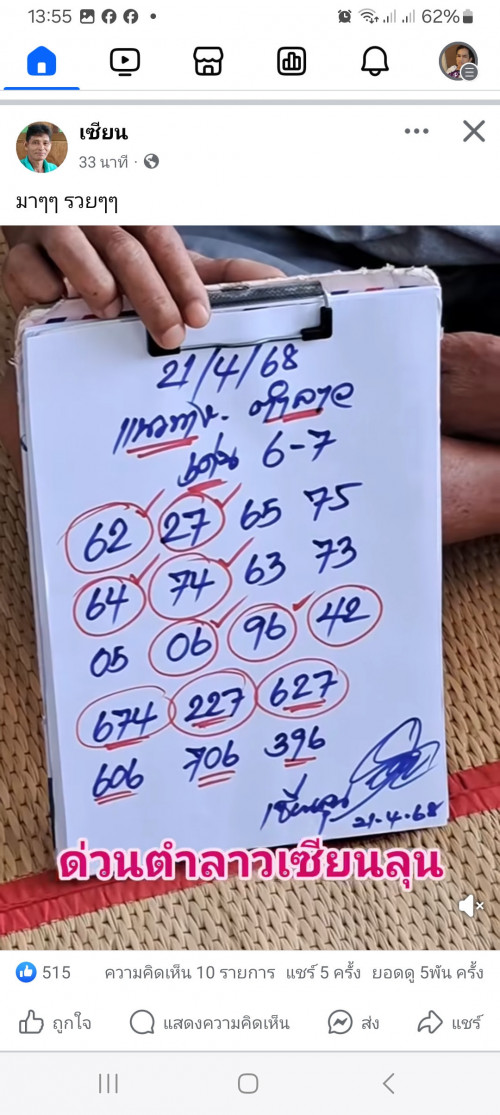 13:55
62%
เซียน
33 นาที
มาๆๆ รวยๆๆ
21/4/68
แนวทาง. ตำลาว
เด่น 6-7
62 27 65 75
64 74 63 73
05 06 96 42
674 227 627
606 706 396
เซียนลุน
21-4-68
ด่วนตำลาวเซียนลุน
515 ความคิดเห็น 10 รายการ แชร์ 5 ครั้ง ยอดดู 5พัน ครั้ง
ถูกใจ แสดงความคิดเห็น ส่ง แชร์